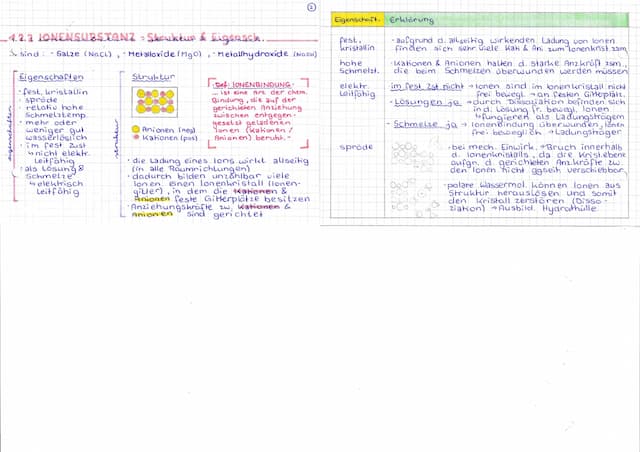 4.2.2 IONENSUBSTANZ - Struktur & Eigensch.
sind: · Salze (NaCl), · Metalloxide (MgO), · Metallhydroxide (NaOH)
Eigenschaften
eigenschaften
· fest, kristallin
· spröde
· relativ hohe
Schmelztemp.
· mehr oder
weniger gut
wasserlöslich
· im fest. Zust.
→ nicht elektr.
leitfähig
· als Lösung &
Schmelze
→ elektrisch
leitfähig
Struktur
struktur
Anionen (neg)
Kationen (pos)
Def. IONENBINDUNG
... ist eine Art der chem.
Bindung, die auf der
gerichteten Anziehung
zwischen entgegen-
gesetzt geladenen
Ionen (Kationen /
Anionen) beruht.
· die Ladung eines Ions wirkt allseitig
(in alle Raumrichtungen)
· dadurch bilden unzählbar viele
Ionen einen Ionenkristall (Ionen-
gitter), in dem die Kationen &
Anionen feste Gitterplätze besitzen
· Anziehungskräfte zw. Kationen &
Anionen sind gerichtet
Eigenschaft Erklärung
fest, kristallin
· aufgrund d. allseitig wirkenden Ladung von Ionen
finden sich sehr viele Kat & An. zum Ionenkrist. zsm.
hohe Schmelzt.
· Kationen & Anionen halten d. starke Anz.kräft zsm.,
die beim Schmelzen überwunden werden müssen
elektr. leitfähig
im fest Zst nicht → Ionen sind im Ionenkristall nicht
frei bewegl. → an festen Gitterplätz.
· Lösungen ja → durch Dissoziation befinden sich
in d. Lösung fr. bewegl. Ionen
→ fungieren als Ladungsträgern
· Schmelze ja → Ionenbindung überwunden, Ionen
frei beweglich → Ladungsträger
spröde
· bei mech. Einwirk. → Bruch innerhalb
d. Ionenkristalls, da die Kristallebene
aufgr. d. gerichteten Anz.kräfte zw.
den Ionen nicht ggseit. verschiebbar
· polare Wassermol. können Ionen aus
Struktur herauslösen und somit
den Kristall zerstören (Disso-
ziation) → Ausbild. Hydrathülle